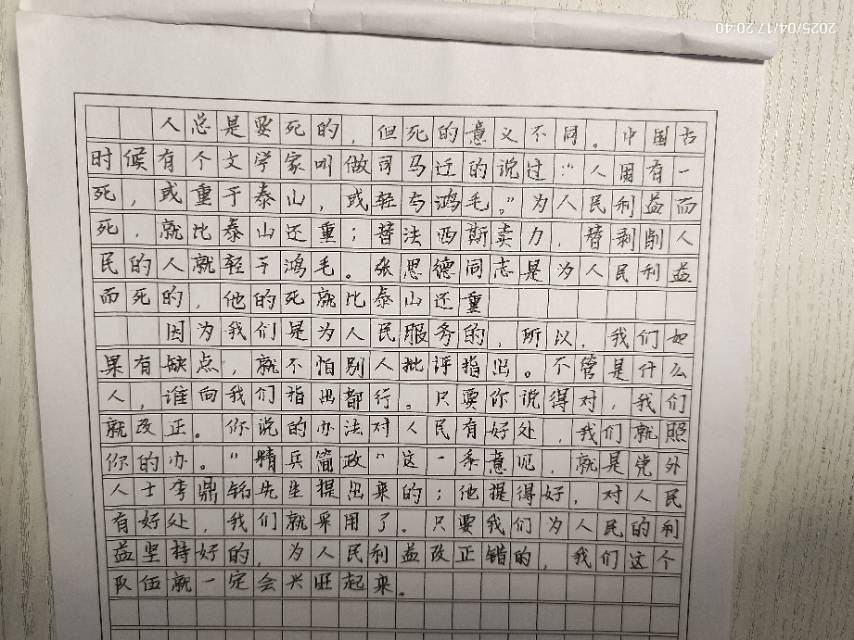 2025/04/17 20:40
人总是要死的，但死的意义不同。中国古
时候有个文学家叫做司马迁的说过："人固有一
死，或重于泰山，或轻于鸿毛。"为人民利益而
死，就比泰山还重；替法西斯卖力，替剥削人
民的人就轻于鸿毛。张思德同志是为人民利益
而死的，他的死就比泰山还重
因为我们是为人民服务的，所以，我们如
果有缺点，就不怕别人批评指出。不管是什么
人，谁向我们指出都行。只要你说得对，我们
就改正。你说的办法对人民有好处，我们就照
你的办。"精兵简政"这一条意见，就是党外
人士李鼎铭先生提出来的；他提得好，对人民
有好处，我们就采用了。只要我们为人民的利
益坚持好的，为人民利益改正错的，我们这个
队伍就一定会兴旺起来。